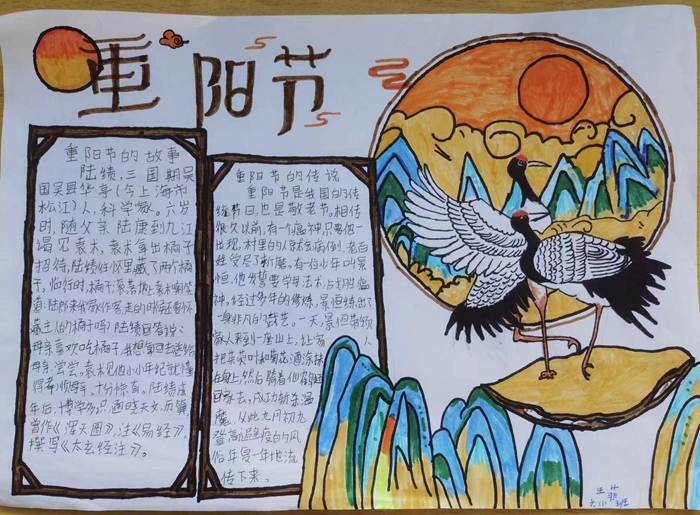 重阳节
重阳节的故事
陆绩,三国期吴
国吴县华亭(今上海市
松江)人,科学家。六岁
时,随父亲陆康到九江
谒见袁术,袁术拿出橘子
招待,陆绩往怀里藏了两个橘
子,临行时,橘子滚落地,袁术嘲笑
道:陆郎来我家作客,走的时候还要怀
藏主人的橘子吗?陆绩回答说:
母亲喜欢吃橘子,我想拿回去送给
母亲尝尝。袁术见他小小年纪就懂
得孝顺母亲,十分惊奇。陆绩成
年后,博学多识,通晓天文、历算,
曾作《浑天图》,注《易经》,
撰写《太玄经注》。
重阳节的传说
重阳节是我国的传
统节日,也是敬老节,相传
很久以前,有一个瘟神,只要他一
出现,村里的人就会病倒,老百
姓受尽了折磨。有一位少年叫景
恒,他发誓要学习法术,
神,经过多年的修炼,景恒练出了
一身非凡的载艺。一天,景恒带领
家人来到一座山上,让家人
把茱萸叶和菊花酒涂抹
在身上,然后骑着
回家去,成功斩杀温
魔,从此九月初九
登高避疫的风
俗年复一年地流
传下来。